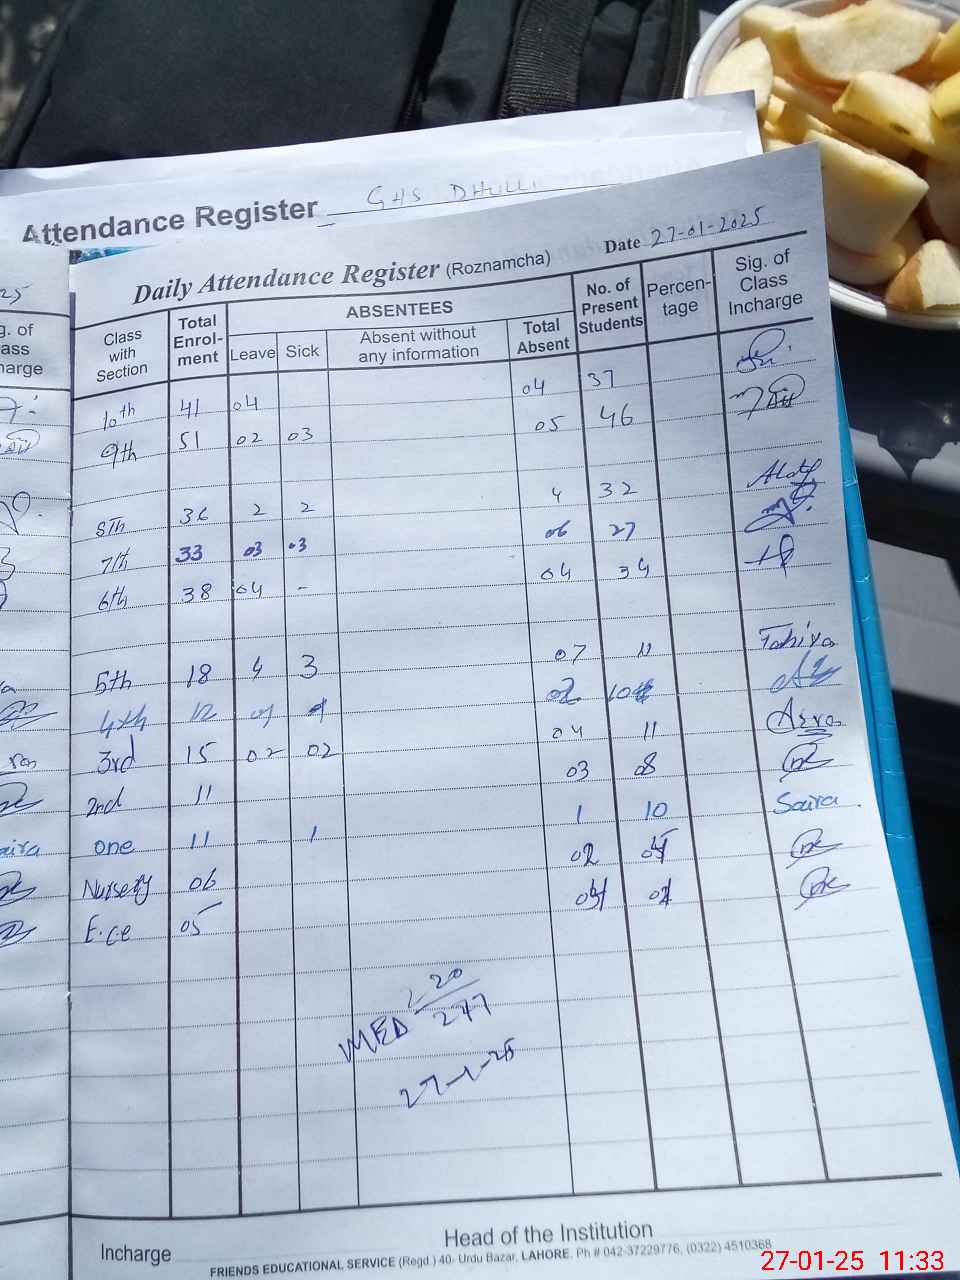 Attendance Register GHS DHULLI
Daily Attendance Register (Roznamcha) Date 27-01-2025
Class with Section Total Enrol-ment ABSENTEES Leave Sick Absent without any information Total Absent No. of Present Students Percen-tage Sig. of Class Incharge
10th 41 04 04 37
9th 51 02 03 05 46
8th 36 2 2 4 32
7th 33 03 03 06 27
6th 38 04 - 04 34
5th 18 4 3 07 11
4th 12 01 10
3rd 15 02 02 04 11 Asra
2nd 11 03 08
one 11 - 1 1 10 Saira
Nursery 06 02
E.ce 05
MED 220
277
27-1-25
Incharge Head of the Institution
FRIENDS EDUCATIONAL SERVICE (Regd.) 40- Urdu Bazar, LAHORE. Ph # 042-37229776, (0322) 4510368
27-01-25 11:33